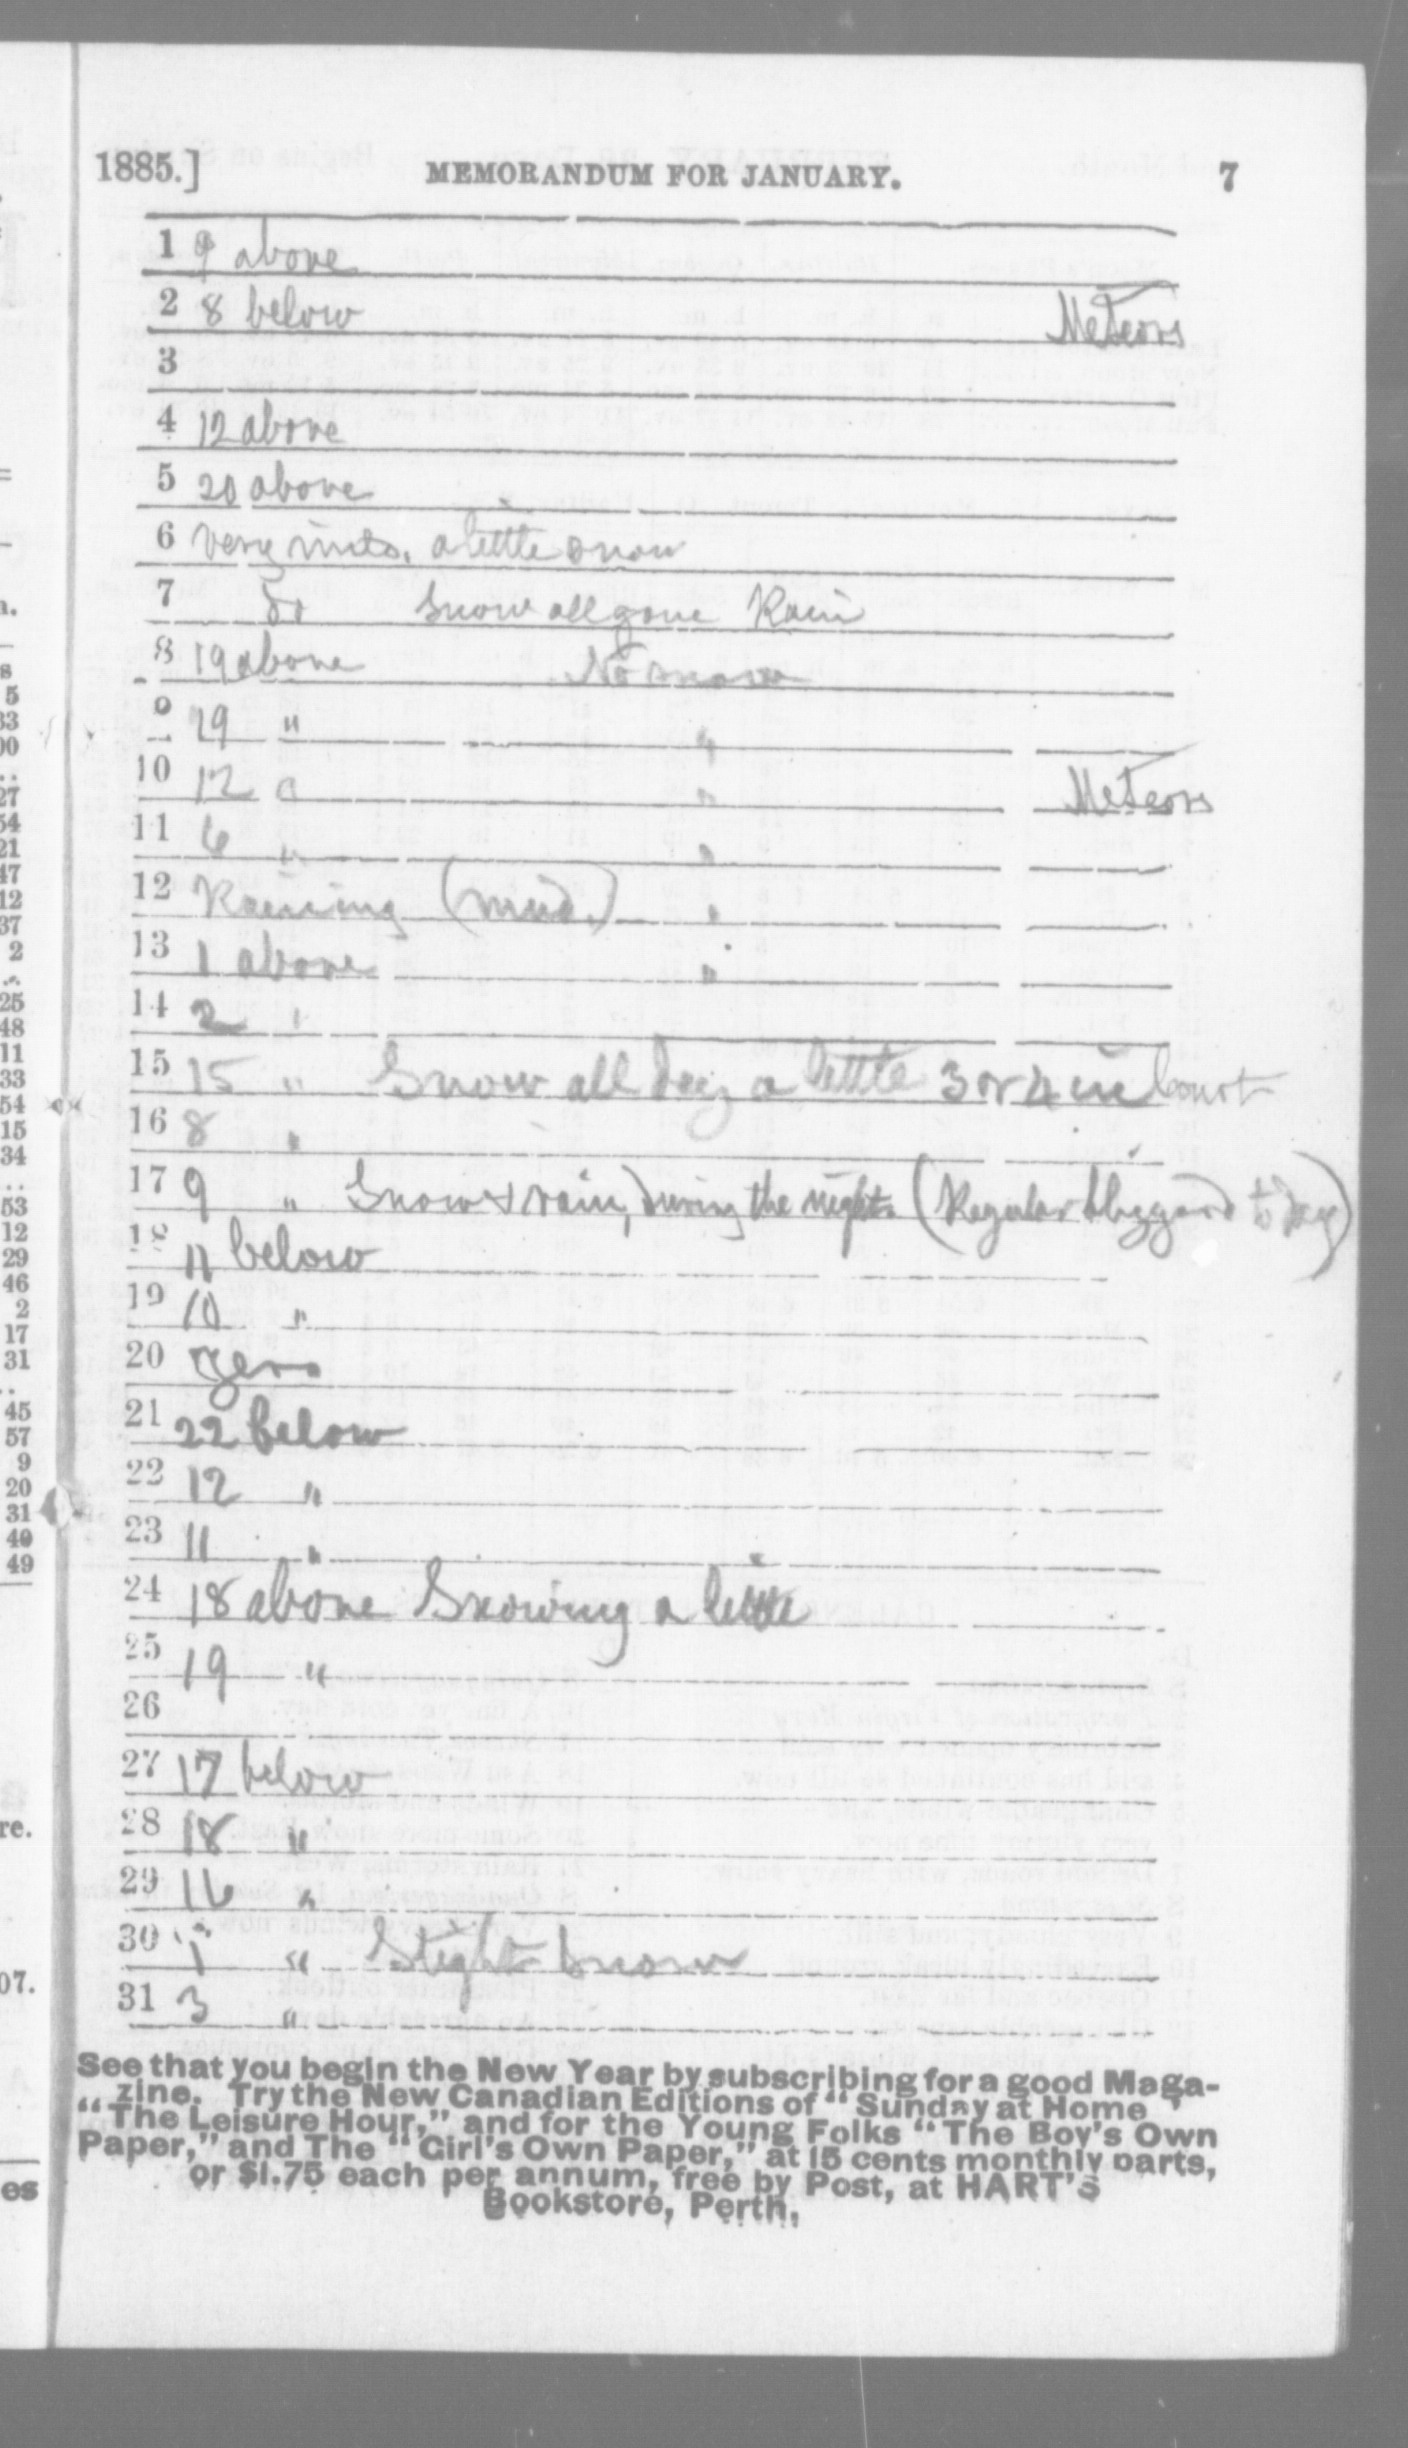 1885.] MEMORANDUM FOR JANUARY. 7
1 9 above
2 8 below Meteors
3
4 12 above
5 20 above
6 very mild. a little snow
7 do Snow all gone Rain
8 19 above No snow
9 19 " "
10 12 " " Meteors
11 6 " "
12 Raining (mild.) "
13 1 above "
14 2 "
15 15 " Snow all day a little 3 or 4 in
16 8 "
17 9 " Snow & rain, during the night. (Regular blizzard to day)
18 11 below
19 10 "
20 Zero
21 22 below
22 12 "
23 11 "
24 18 above Snowing a little
25 19 "
26
27 17 below
28 18 "
29 16 "
30 1 " Slight Snow
31 3 "
See that you begin the New Year by subscribing for a good Maga-
zine. Try the New Canadian Editions of "Sunday at Home"
"The Leisure Hour," and for the Young Folks "The Boy's Own
Paper," and The "Girl's Own Paper," at 15 cents monthly parts,
or $1.75 each per annum, free by Post, at HART'S
Bookstore, Perth.